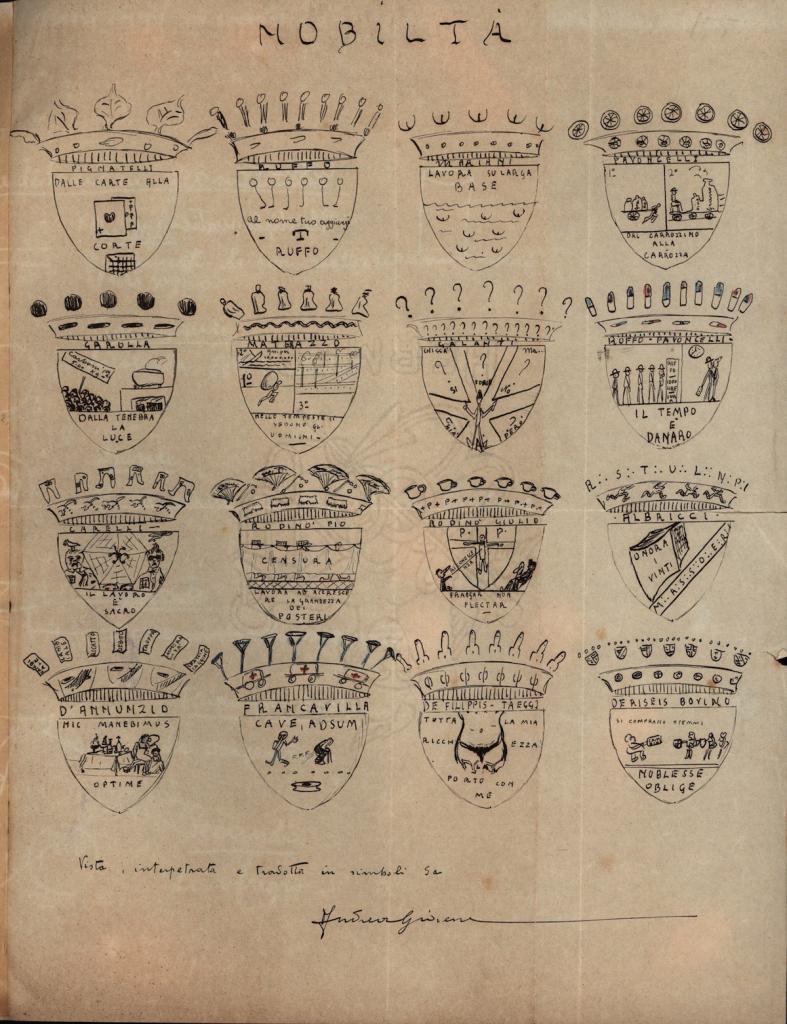 NOBILTÀ
PIGNATELLI
DALLE CARTE ALLA
CORTE
RUFFO
al nome tuo aggiungi
- T -
RUFFO
MARIANI
LAVORA SU LARGA
BASE
PAVONCELLI
1° 2°
DAL CARROZZINO
ALLA
CARROZZA
GAROLLA
DALLA TENEBRA
LA
LUCE
MATERAZZO
1°
3°
NELLE TEMPESTE SI
VEDONO GLI
UOMINI -
GALANTI
CHISSÀ ? MA..
SI FORSE NO
GIÀ PERÒ
RUFFO - PAVONCELLI -
IL TEMPO
È
DANARO
CARELLI -
IL LAVORO
È
SACRO
RODINO' PIO
CENSURA
LAVORA AD ACCRESCE
RE LA GRANDEZZA
DEI
POSTERI
RODINO' GIULIO
P. P.
FRANGAR NON
FLECTAR
R.:. S.:. T.:. U.:. L.:. N.:. P.:.
ALBRICCI.
ONORA
I
VINTI
M.A.S.S.O.N.E.R.
D'ANNUNZIO
HIC MANEBIMUS
OPTIME
FRANCAVILLA
CAVE, ADSUM
DE FILIPPIS - TAEGGI
TUTTA LA MIA
RICCHEZZA
PORTO CON
ME
DE RISEIS BOVINO
SI COMPRANO STEMMI
NOBLESSE
OBLIGE
Vista, interpetrata e tradotta in simboli da
Andrea Giovene